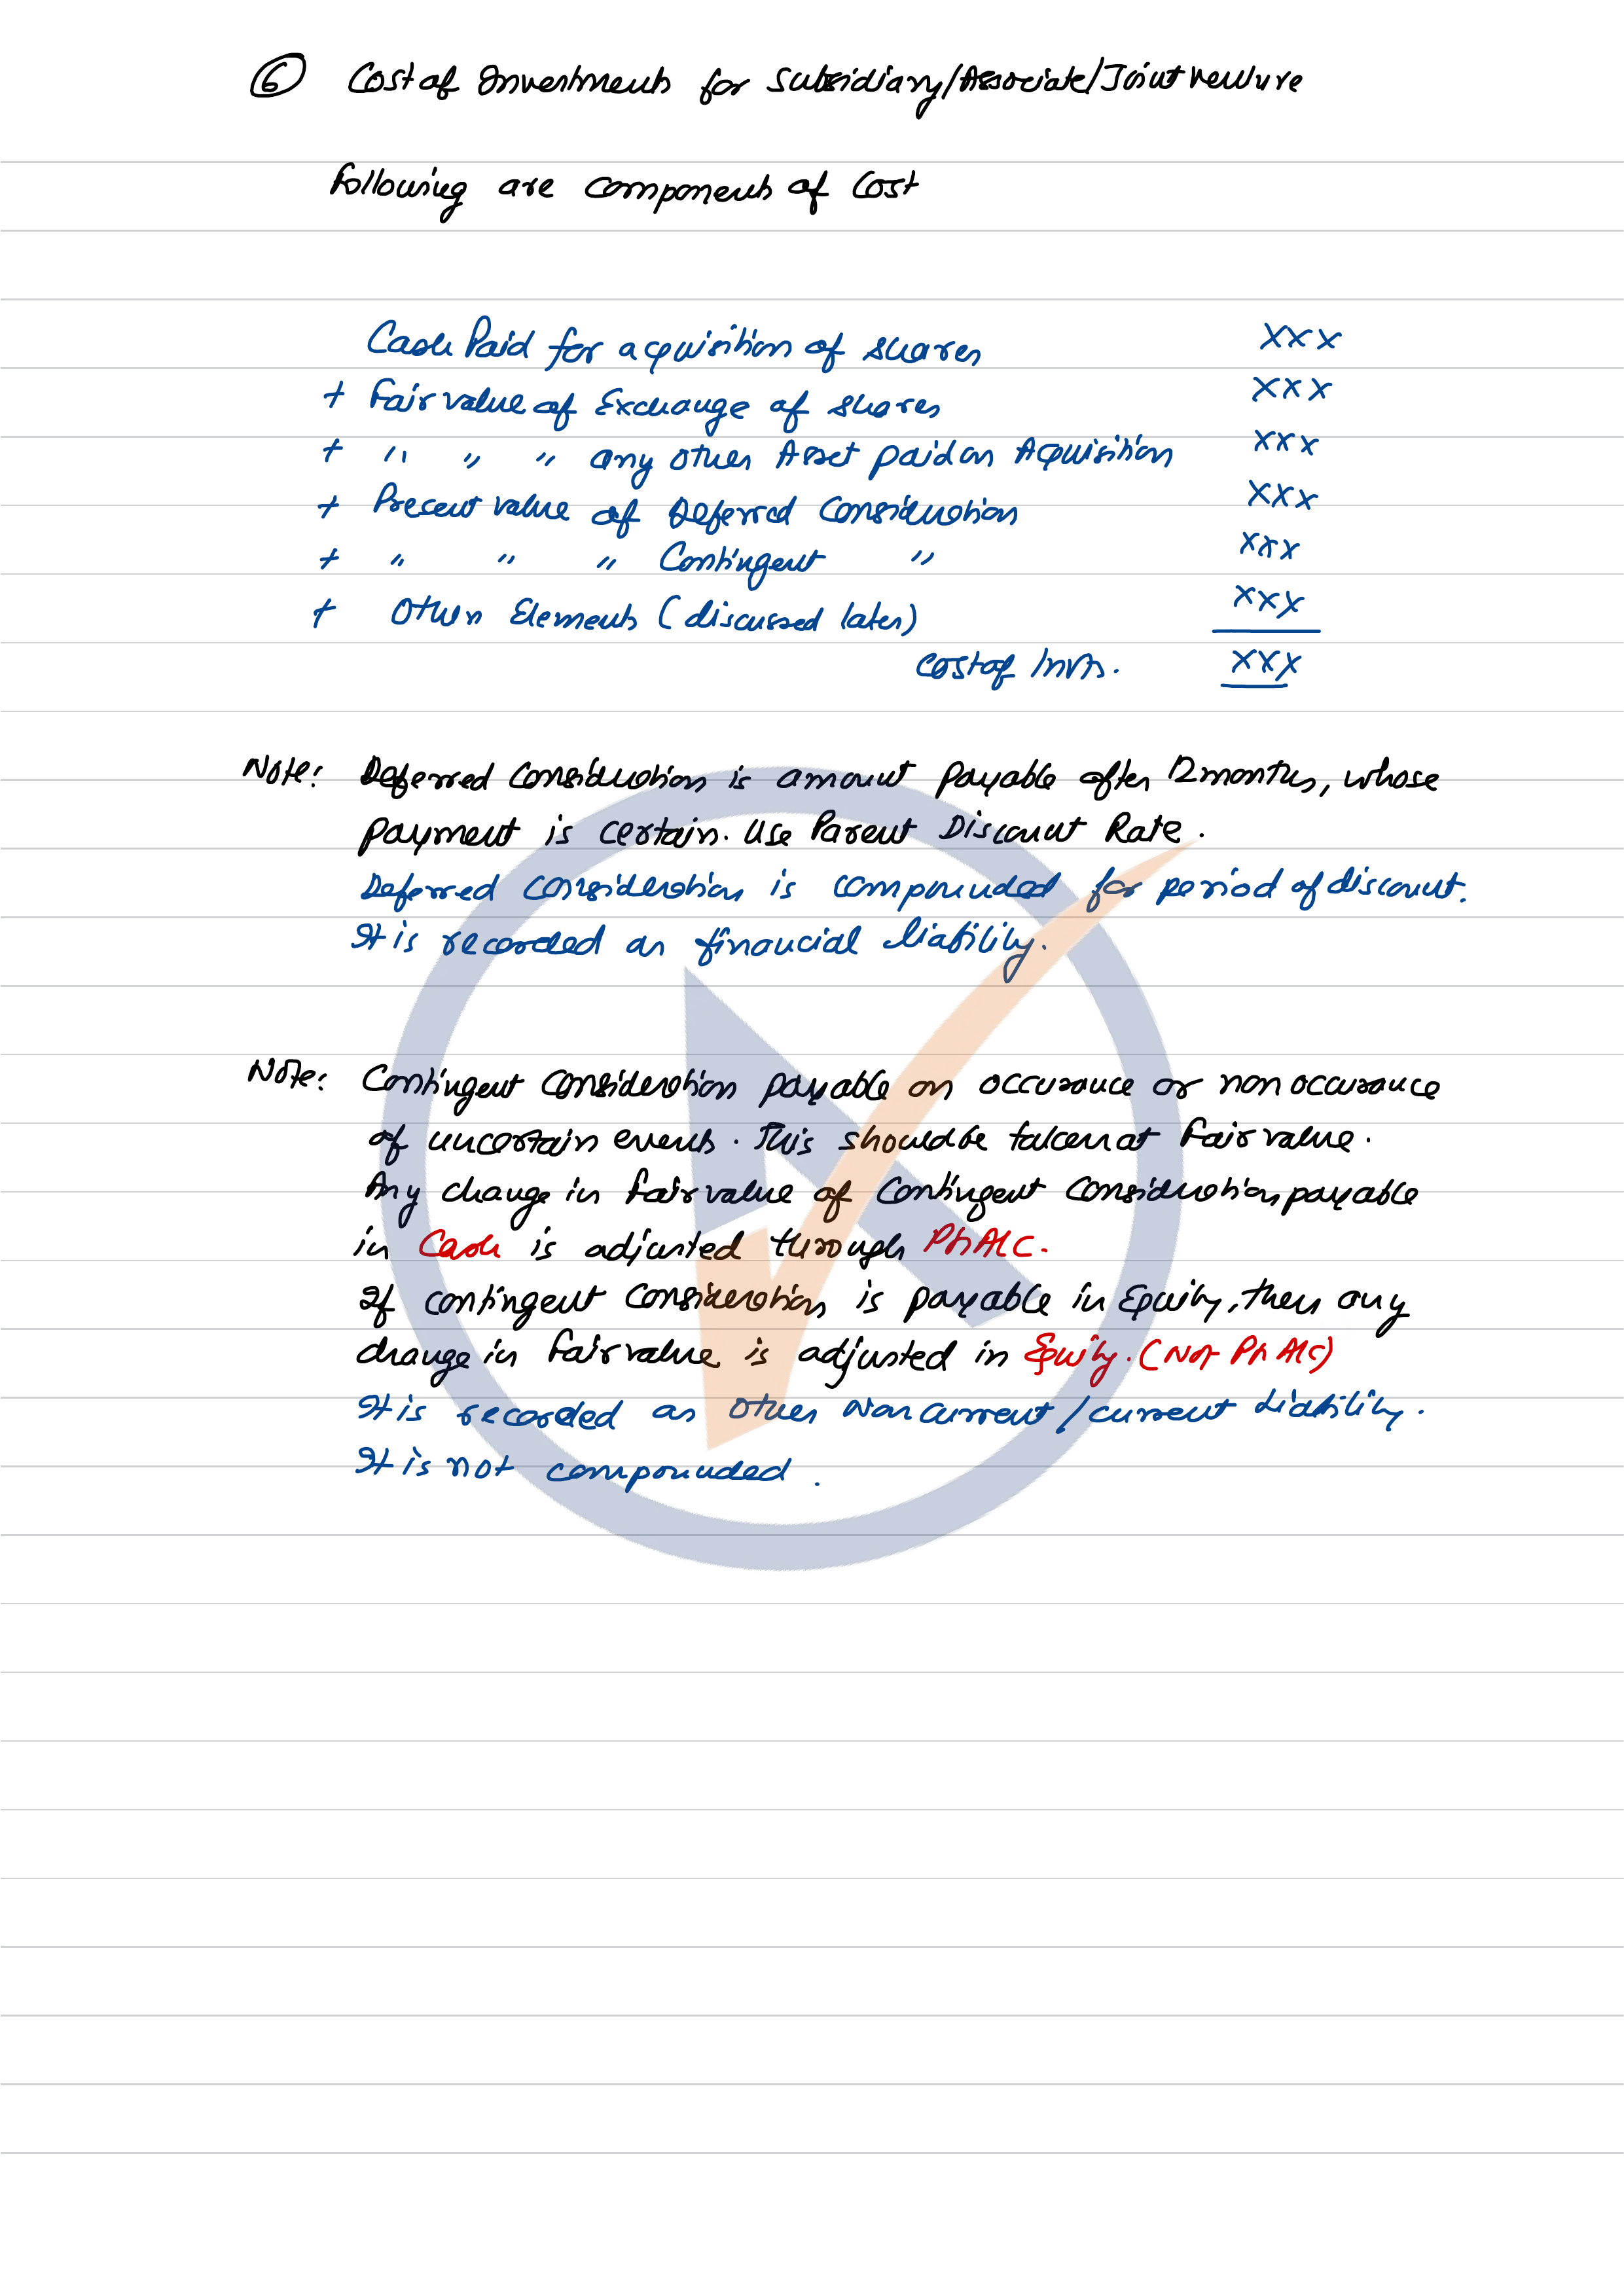 ⑥ Cost of Investments for Subsidiary/Associate/Joint venture
Following are components of Cost
Cash Paid for acquisition of shares XXX
+ Fair value of Exchange of shares XXX
+ " " " any other Asset paid on Acquisition XXX
+ Present value of Deferred Consideration XXX
+ " " " Contingent " XXX
+ Other Elements (discussed later) XXX
Cost of Invts. XXX
Note: Deferred Consideration is amount payable after 12 months, whose
payment is certain. Use Parent Discount Rate.
Deferred consideration is compounded for period of discount.
It is recorded as financial liability.
Note: Contingent Consideration payable on occurance or non occurance
of uncertain events. This should be taken at Fair value.
Any change in Fair value of Contingent Consideration payable
in Cash is adjusted through P&L A/c.
If contingent Consideration is payable in Equity, then any
change in Fair value is adjusted in Equity. (Not P&L A/c)
It is recorded as other Non current/current Liability.
It is not compounded.